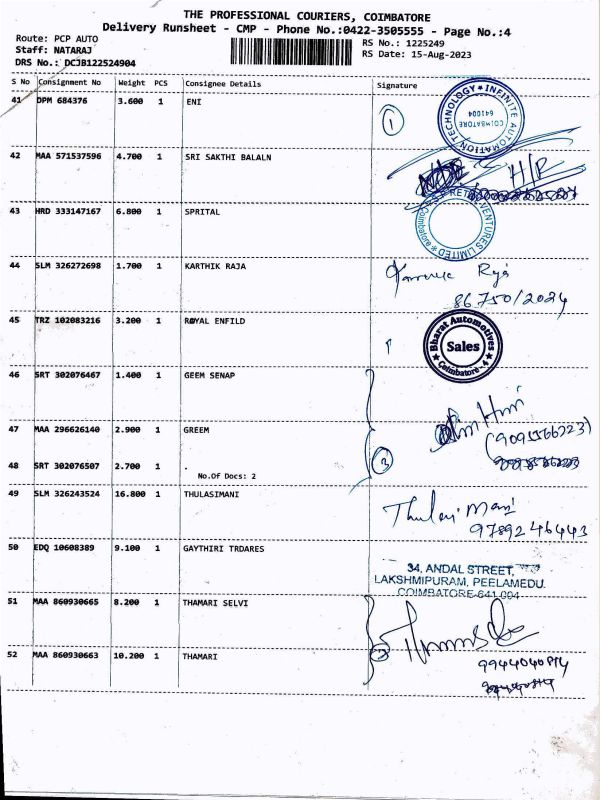 THE PROFESSIONAL COURIERS, COIMBATORE
Delivery Runsheet - CMP - Phone No.:0422-3505555 - Page No.:4
Route: PCP AUTO
RS No.: 1225249
Staff: NATARAJ
RS Date: 15-Aug-2023
DRS No.: DCJB122524904
S No Consignment No Weight PCS Consignee Details Signature
41 DPM 684376 3.600 1 ENI
1
INFINITE AUTOMATION TECHNOLOGY
COIMBATORE
641004
42 MAA 571537596 4.700 1 SRI SAKTHI BALALN
H/R
43 HRD 333147167 6.800 1 SPRITAL
VENTURES LIMITED
Coimbatore
44 SLM 326272698 1.700 1 KARTHIK RAJA
Raja
86750/2024
45 TRZ 102083216 3.200 1 ROYAL ENFILD
Bharat Automotives
Sales
Coimbatore - 4
46 SRT 302076467 1.400 1 GEEM SENAP
47 MAA 296626140 2.900 1 GREEM
(9095566223)
48 SRT 302076507 2.700 1 .
No.Of Docs: 2
3
49 SLM 326243524 16.800 1 THULASIMANI
Thulasi Mani
9789246443
50 EDQ 10608389 9.100 1 GAYTHIRI TRDARES
34, ANDAL STREET,
LAKSHMIPURAM, PEELAMEDU.
COIMBATORE-641 004
51 MAA 860930665 8.200 1 THAMARI SELVI
2
52 MAA 860930663 10.200 1 THAMARI
9944040814